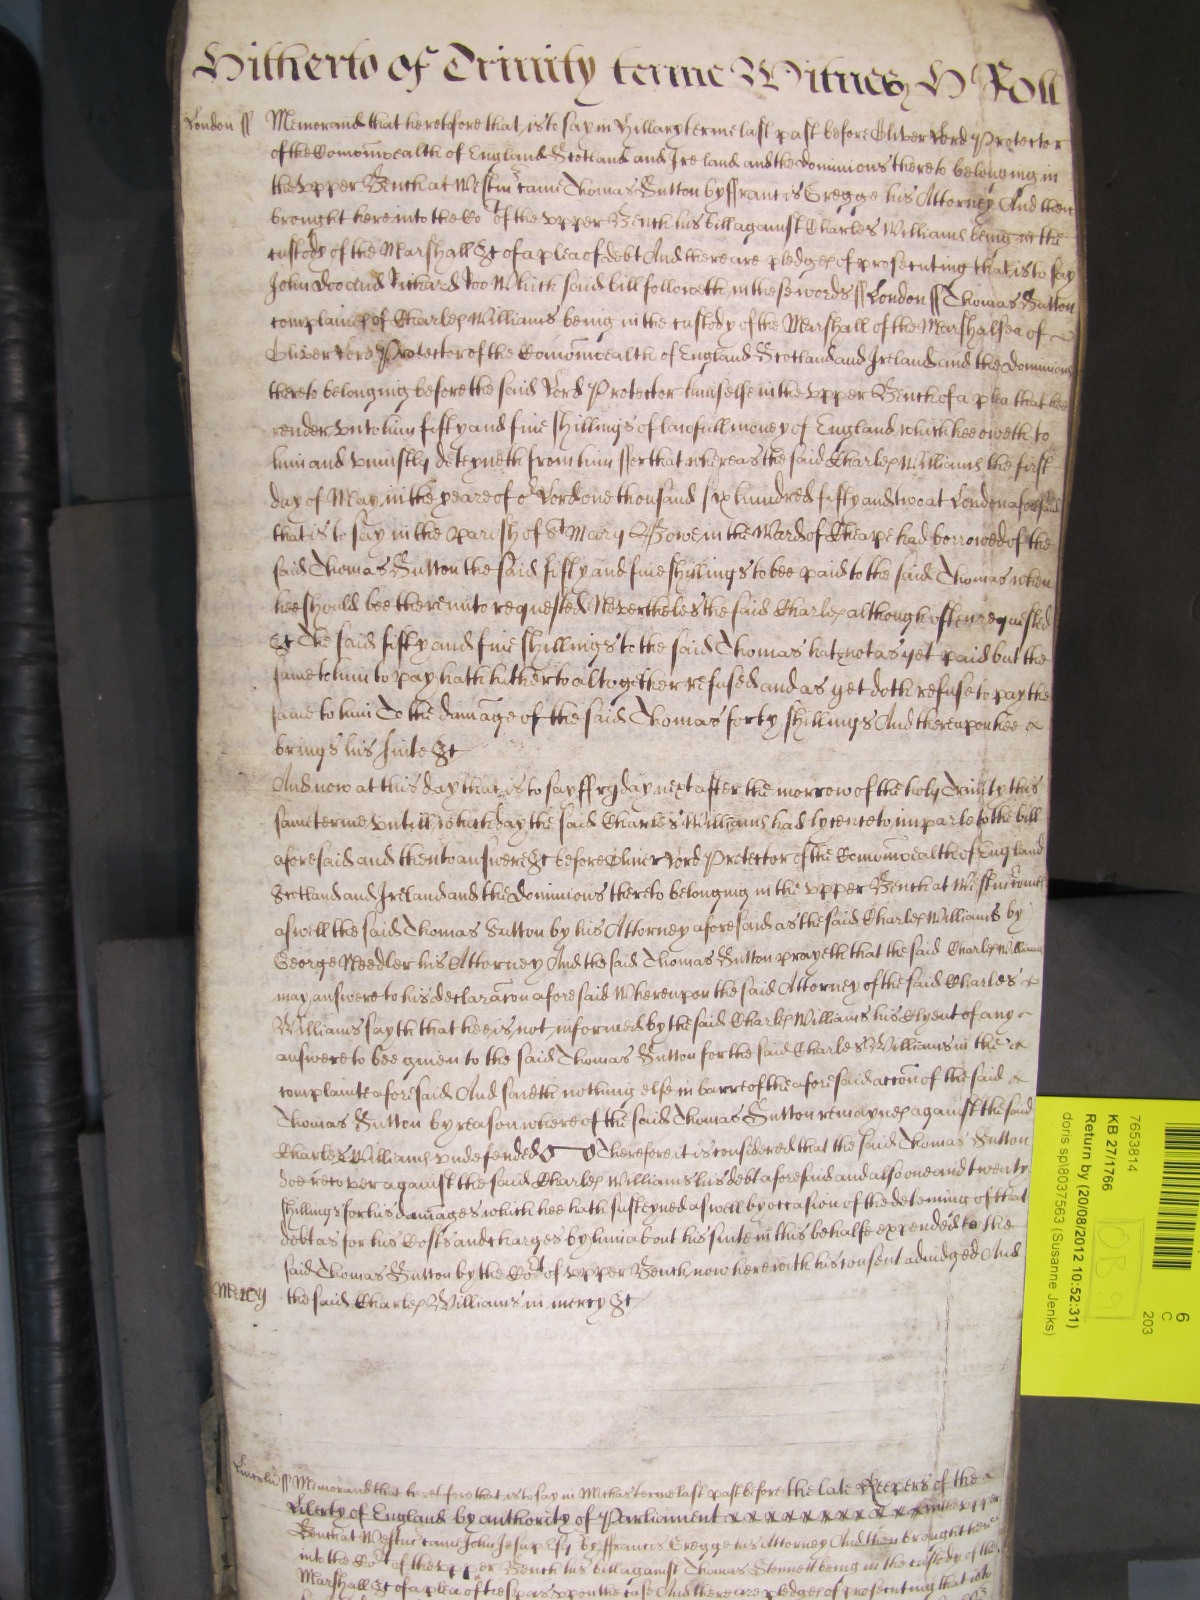 Hitherto of Trinity terme Witnes H Roll
London ss Memorand that heretofore that is to say in Hillary terme last past before Oliver Lord Protector
of the Comonwealth of England Scotland and Ireland and the Dominions thereto belonging in
the Upper Bench at Westm came Thomas Sutton by ffrancis Gregge his Attorney And then
brought here into the Cort of the Upper Bench his bill against Charles Williams being in the
custody of the Marshall &c of a plea of debt And there are pledges of prosecuting that is to say
John Doo and Richard Roo Which said bill followeth in these words ss London ss Thomas Sutton
complaines of Charles Williams being in the custody of the Marshall of the Marshalsea of
Oliver Lord Protector of the Comonwealth of England Scotland and Ireland and the Dominions
thereto belonging before the said Lord Protector himselfe in the Upper Bench of a plea that hee
render unto him fifty and five shillings of lawfull money of England which hee oweth to
him and uniustly deteyneth from him ffor that whereas the said Charles Williams the first
day of May in the yeare of or Lord one thousand six hundred fifty and two at London aforesaid
that is to say in the parish of St Mary Bowe in the Ward of Cheape had borrowed of the
said Thomas Sutton the said fifty and five shillings to bee paid to the said Thomas when
hee should bee thereunto requested Neverthelesse the said Charles although often requested
&c The said fifty and five shillings to the said Thomas hath not as yet paid but the
same to him to pay hath hitherto altogether refused and as yet doth refuse to pay the
same to him To the damage of the said Thomas forty shillings And thereupon hee
brings his suite &c
And now at this day that is to say ffryday next after the morrow of the holy Trinity this
same terme untill which day the said Charles Williams had lycence to imparle to the bill
aforesaid and then to answere &c before Oliver Lord Protector of the Comonwealth of England
Scotland and Ireland and the Dominions thereto belonging in the upper Bench at Westm come
aswell the said Thomas Sutton by his Attorney aforesaid as the said Charles Williams by
George Needler his Attorney And the said Thomas Sutton prayeth that the said Charles Williams
may answere to his declaracon aforesaid Whereupon the said Attorney of the said Charles
Williams sayth that hee is not informed by the said Charles Williams his Clyent of any
answere to bee given to the said Thomas Sutton for the said Charles Williams in the
complainte aforesaid And saveth nothing else in barre of the aforesaid accon of the said
Thomas Sutton by reason whereof the said Thomas Sutton remaynes against the said
Charles Williams undefended Therefore it is considered that the said Thomas Sutton
doe recover against the said Charles Williams his debt aforesaid and also one and twenty
shillings for his damages which hee hath susteyned aswell by occasion of the deteining of that
debt as for his Costs and charges by him about his suite in this behalfe expended to the
said Thomas Sutton by the Cort of Upper Bench now here with his consent adiudged And
Mercy the said Charles Williams in mercy &c
Lincoln ss Memorand that heretofore that is to say in Michas terme last past before the late Keepers of the
Liberty of England by authority of Parliament in the upper
Bench at Westm came John Jesup Esq by ffrancis Gregge his Attorney And then brought here
into the Cort of the upper Bench his bill against Thomas Stennett being in the custody of the
Marshall &c of a plea of trespas upon the case And there are pledges of prosecuting that is to
6
C
203
7653814
KB 27/1766
Return by (20/08/2012 10:52:31)
doris sp\8037563 (Susanne Jenks)